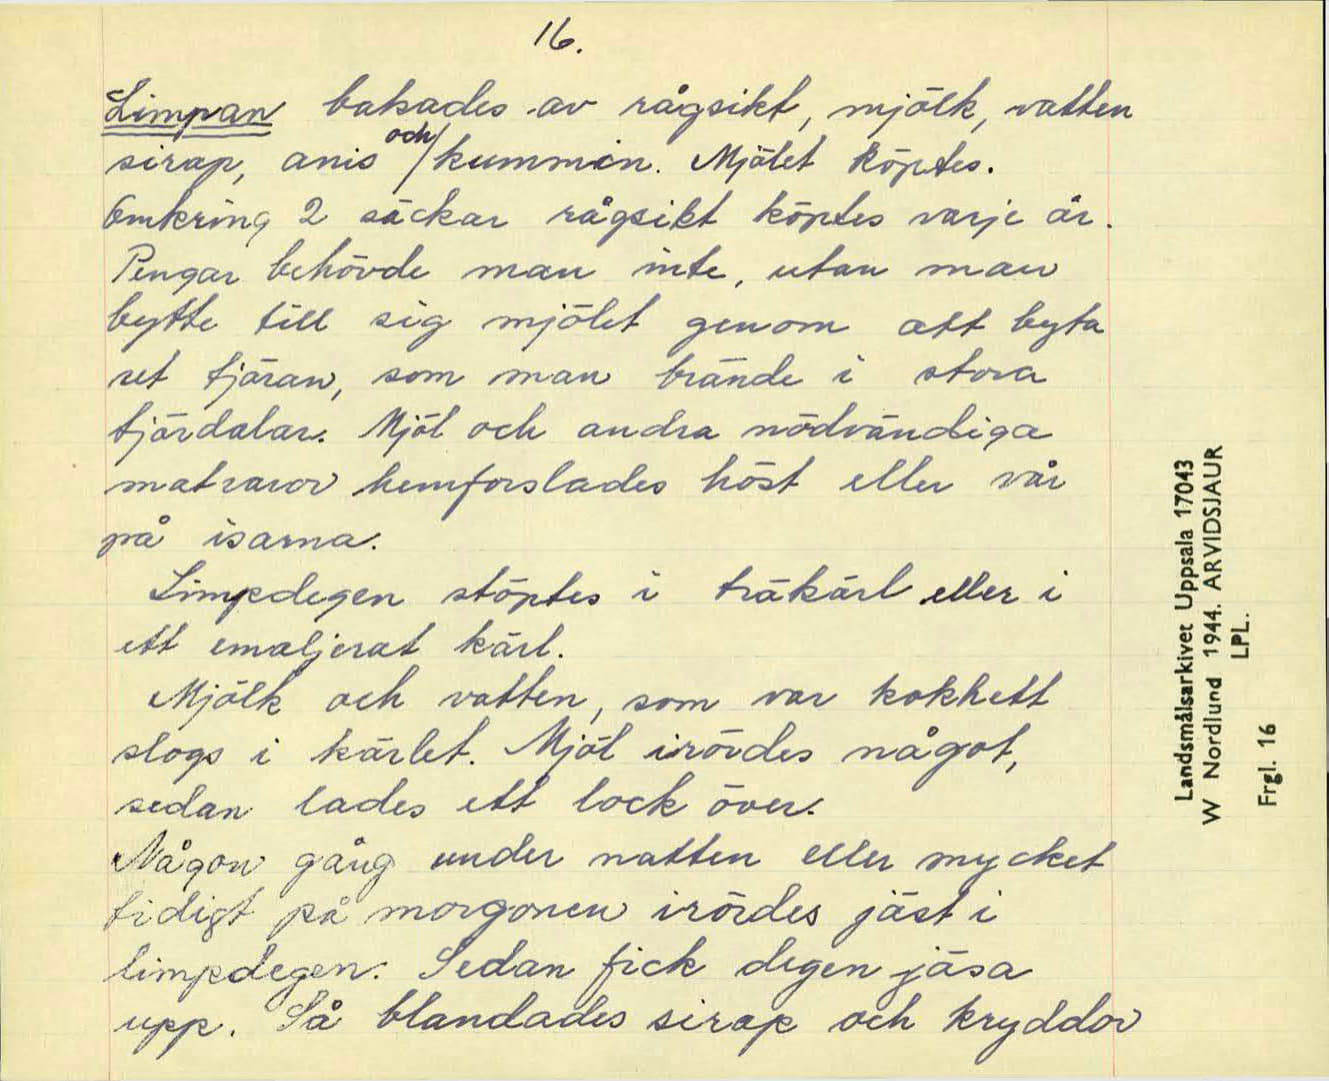 16.
Limpan bakades av rågsikt, mjölk, vatten
sirap, anis och kummin. Mjölet köptes.
Omkring 2 säckar rågsikt köptes varje år.
Pengar behövde man inte, utan man
bytte till sig mjölet genom att byta
ut tjäran, som man brände i stora
tjärdalar. Mjöl och andra nödvändiga
matvaror hemforslades höst eller vår
på isarna.
Limpdegen stöptes i träkärl eller i
ett emaljerat kärl.
Mjölk och vatten, som var kokhett
slogs i kärlet. Mjöl irördes något,
sedan lades ett lock över.
Någon gång under natten eller mycket
tidigt på morgonen irördes jäst i
limpdegen. Sedan fick degen jäsa
upp. Så blandades sirap och kryddor
Landsmålsarkivet Uppsala 17043
W Nordlund 1944. ARVIDSJAUR
LPL.
Frgl. 16